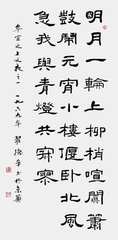 明月一輪上柳梢喧闐簫
鼓鬧元宵小樓偃卧北風
急我與青燈共寂寥